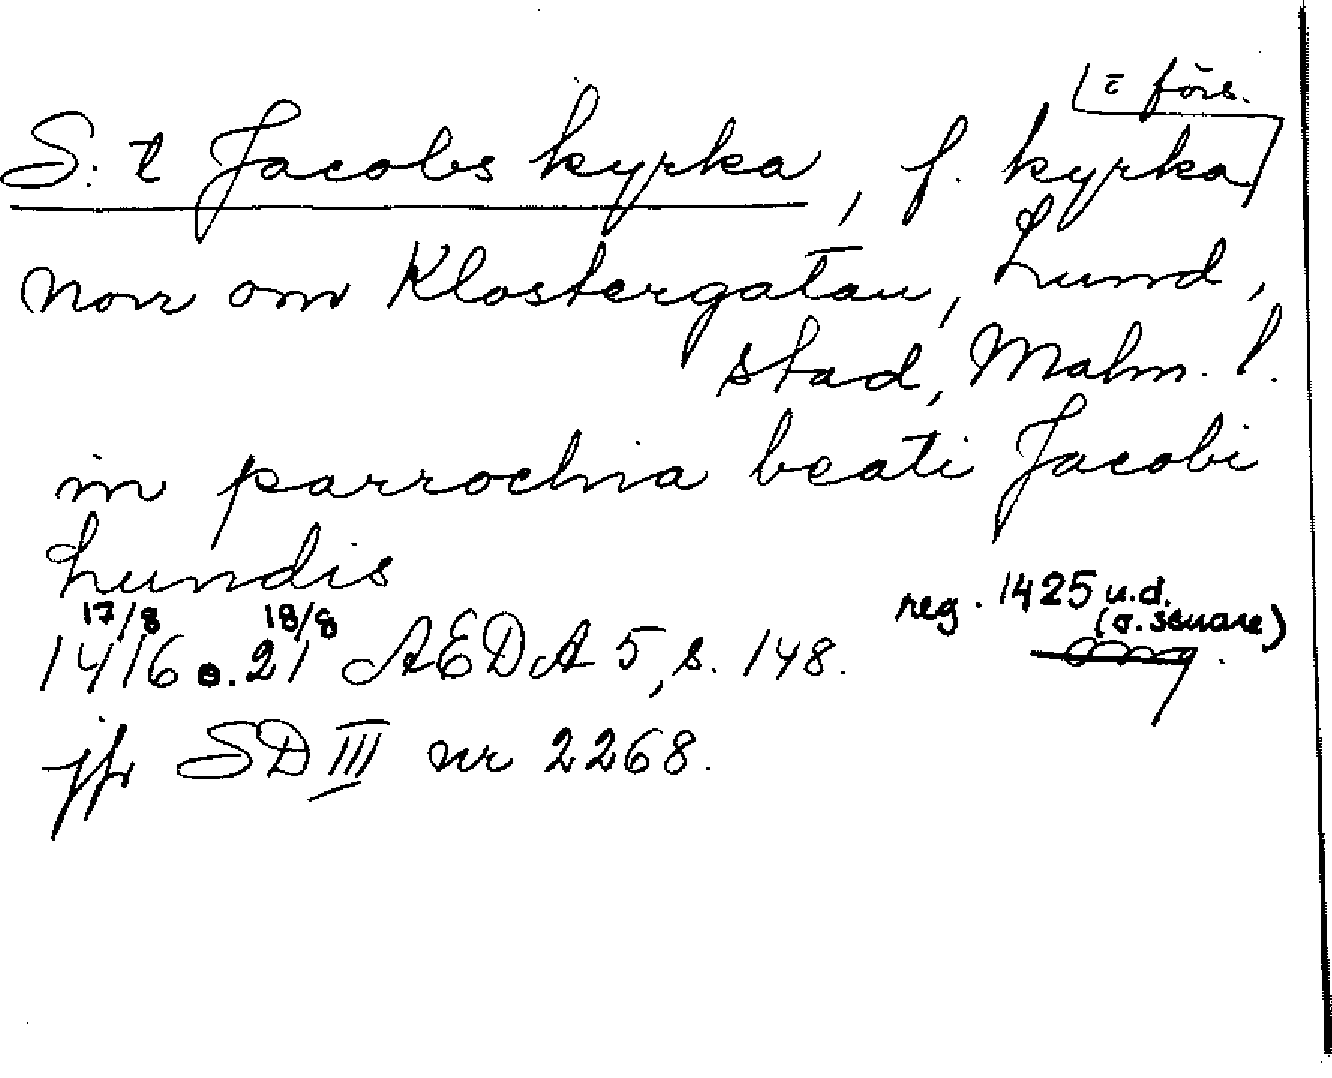 = förs.
S:t Jacobs kyrka, f. kyrka
norr om Klostergatan, Lund,
stad, Malm. l.
in parrochia beati Jacobi
Lundis
17/8 18/8
1416 o. 21 AEDA 5, s. 148.
reg. 1425 u.d.
(o. senare)
jfr SD III nr 2268.